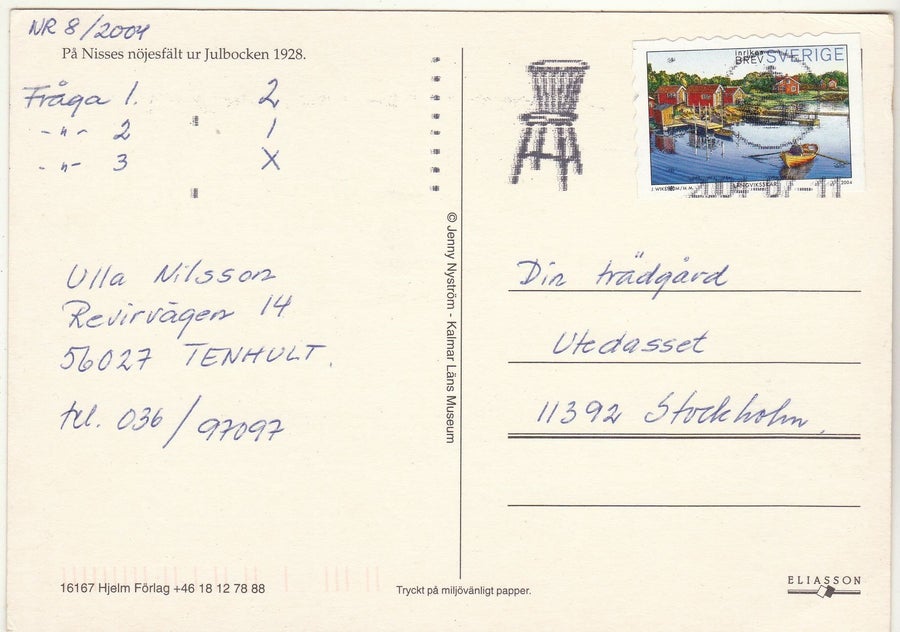 NR 8/2004
På Nisses nöjesfält ur Julbocken 1928.
Fråga 1. 2
-"- 2 1
-"- 3 X
Ulla Nilsson
Revirvägen 14
56027 TENHULT.
tel. 036/97097
16167 Hjelm Förlag +46 18 12 78 88
© Jenny Nyström - Kalmar Läns Museum
Tryckt på miljövänligt papper.
inrikes
BREV SVERIGE
J. WIKSTRÖM/M.M. LÅNGVIKSSKÄR 2004
Din trädgård
Utedasset
11392 Stockholm,
ELIASSON